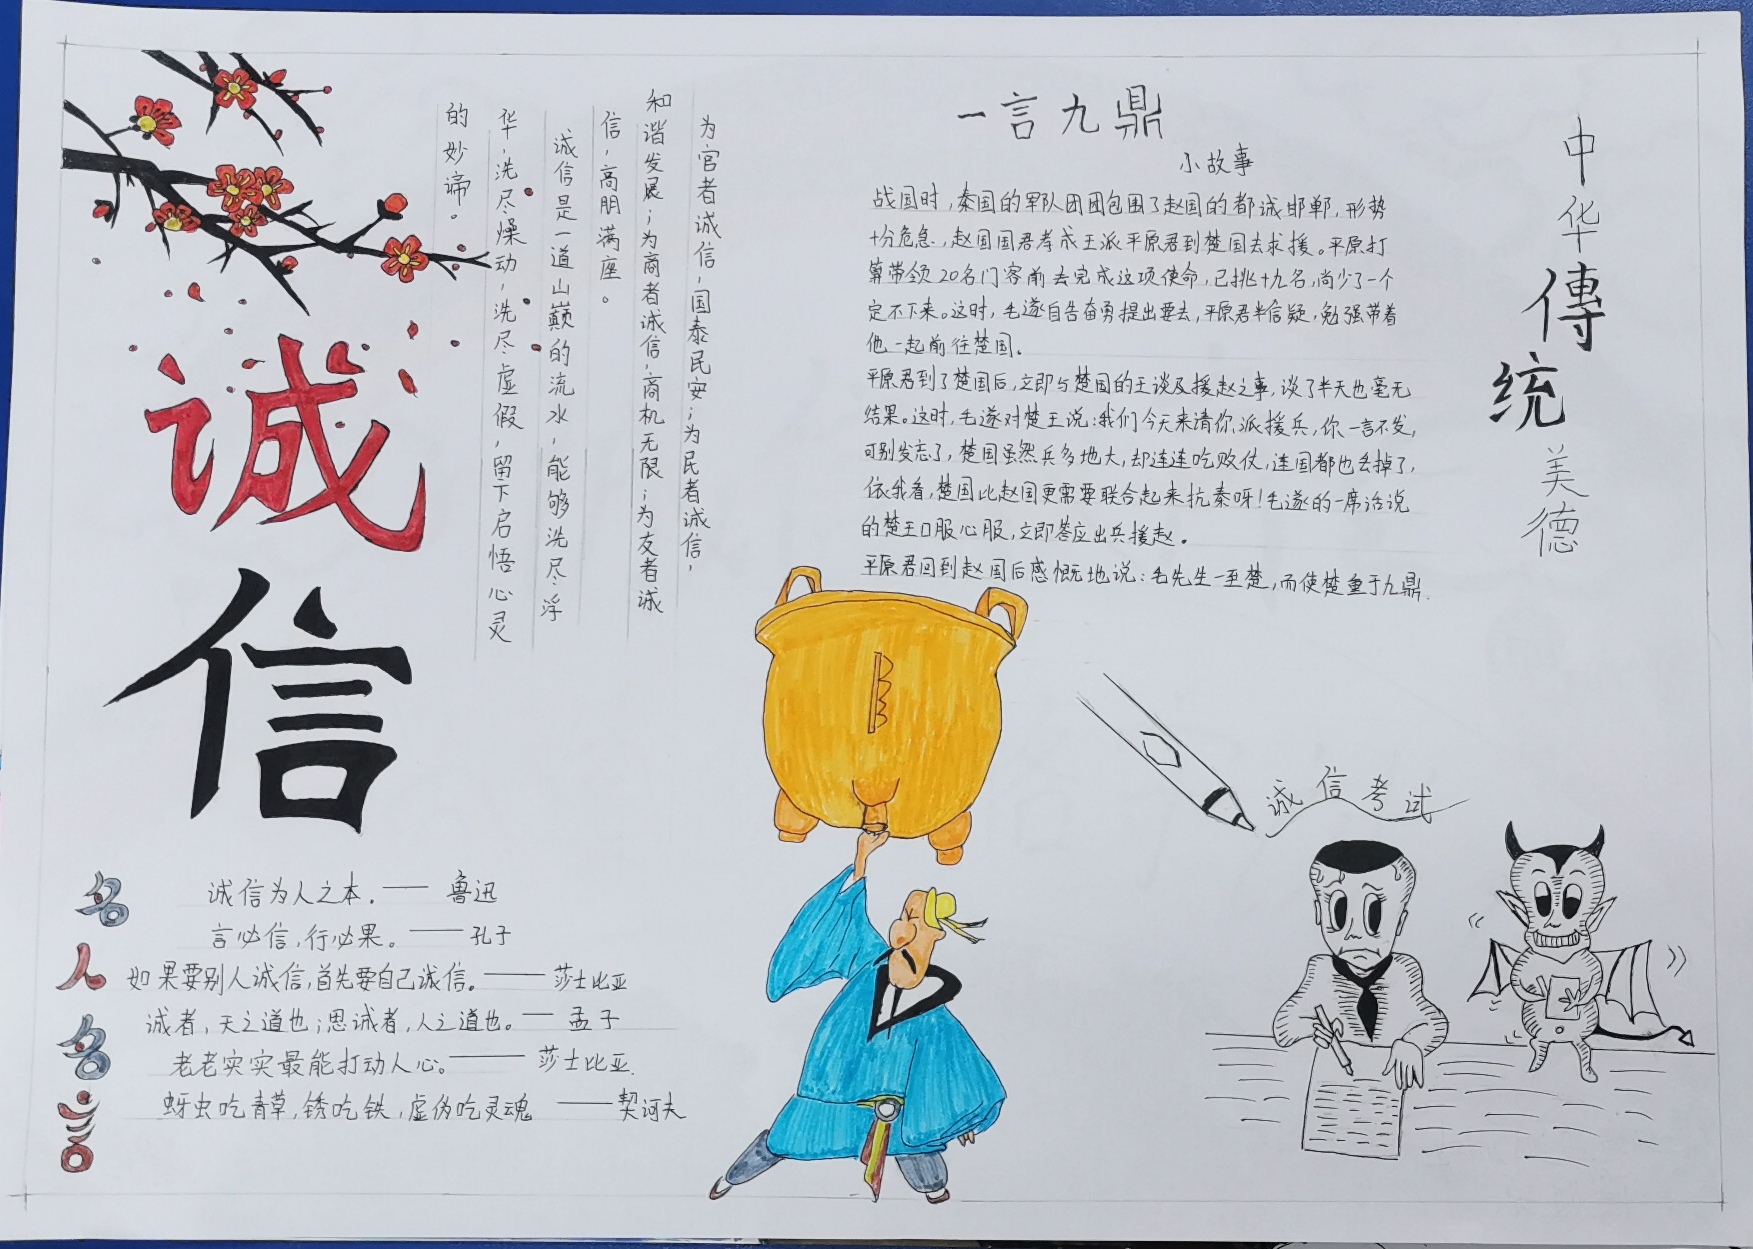 诚
信
为官者诚信，国泰民安；为民者诚信，
和谐发展；为商者诚信，商机无限；为友者诚
信，高朋满座。
诚信是一道山巅的流水，能够洗尽浮
华，洗尽燥动，洗尽虚假，留下启悟心灵
的妙谛。
一言九鼎
小故事
战国时，秦国的军队团团包围了赵国的都诚邯郸，形势
十分危急，赵国国君孝成王派平原君到楚国去求援。平原打
算带领20名门客前去完成这项使命，已挑十九名，尚少了一个
定不下来。这时，毛遂自告奋勇提出要去，平原君半信疑，勉强带着
他一起前往楚国。
平原君到了楚国后，立即与楚国的王谈及援赵之事，谈了半天也毫无
结果。这时，毛遂对楚王说：我们今天来请你派援兵，你一言不发，
可别发忘了，楚国虽然兵多地大，却连连吃败仗，连国都也丢掉了，
依我看，楚国比赵国更需要联合起来抗秦呀！毛遂的一席话说
的楚王口服心服，立即答应出兵援赵。
平原君回到赵国后感慨地说：毛先生一至楚，而使楚重于九鼎.
中华傳统美德
诚信考试
名人名言
诚信为人之本.—— 鲁迅
言必信，行必果。——孔子
如果要别人诚信，首先要自己诚信。——莎士比亚
诚者，天之道也；思诚者，人之道也。— 孟子
老老实实最能打动人心。——莎士比亚.
蚜虫吃青草，锈吃铁，虚伪吃灵魂 ——契诃夫